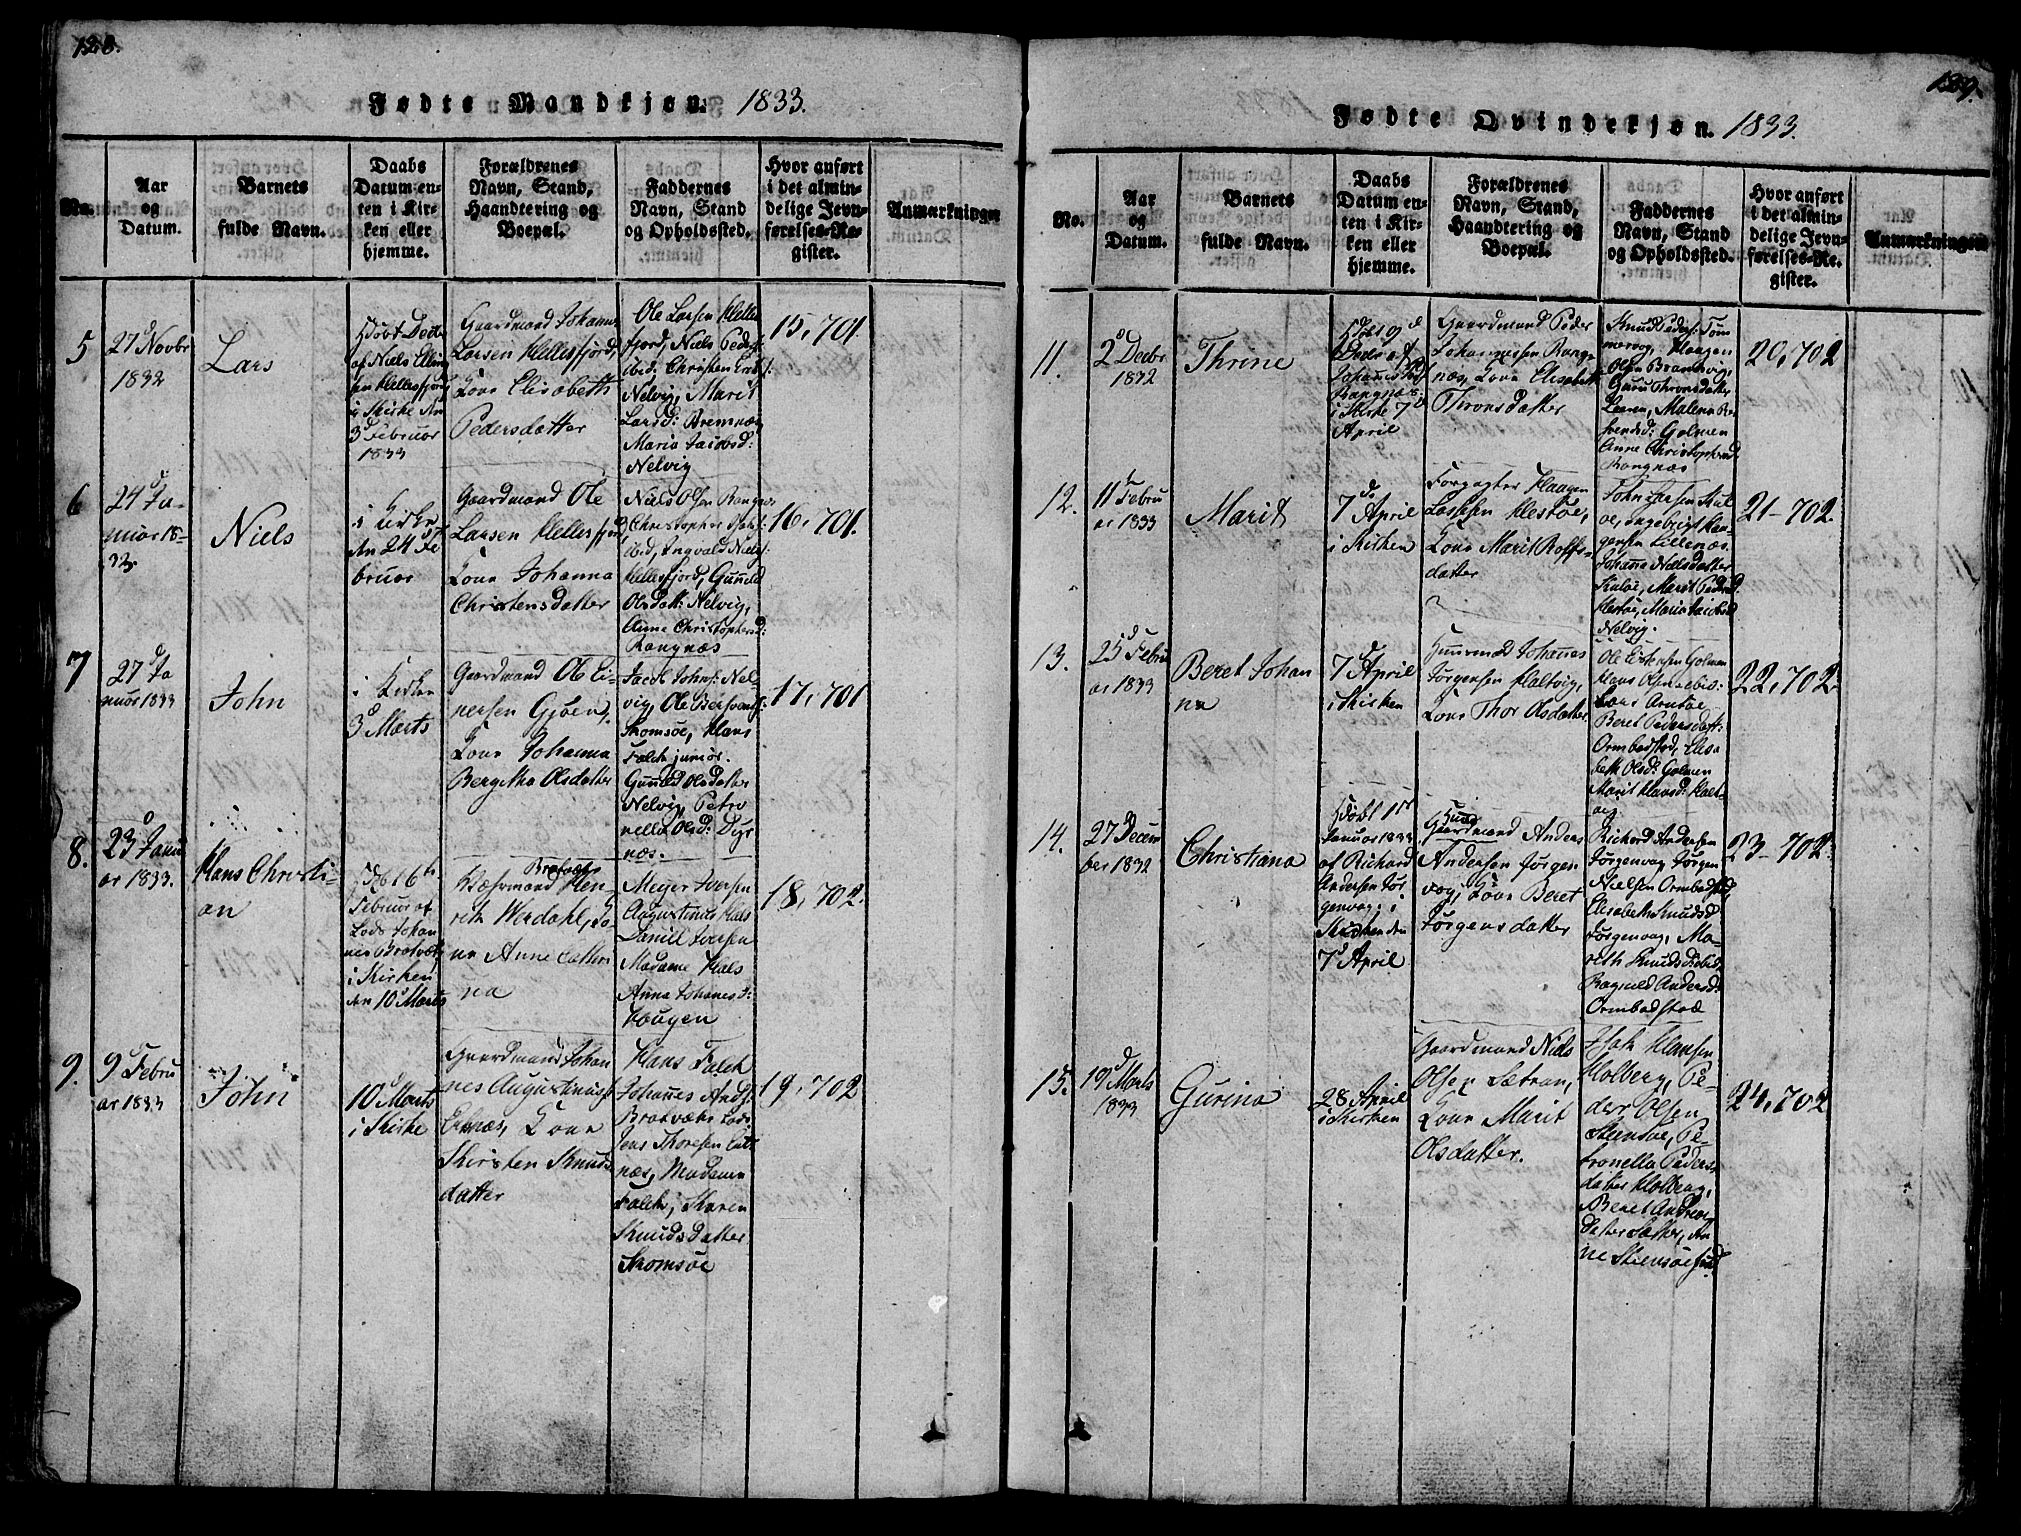 128.
Fødte Mandkjøn. 1833.
No.
Aar
og
Datum.
Barnets
fulde Navn.
Daabs
Datum en-
ten i Kir-
ken eller
hjemme.
Forældrenes
Navn, Stand,
Haandtering og
Boepæl.
Faddernes
Navn, Stand
og Opholdssted.
Hvor anført
i det almin-
delige Jevn-
førelses-Re-
gister.
Anmærkninger
5
27 Novbr
1832
Lars
af Niels
i Kirke
3d Februar
1833
Gaardmand Johannes
Larsen Hellesfjord,
Kone Elisabeth
Pedersdatter
Ole Larsen Helles
fjord, Niels Peders:
ibid: Christen
Nelvig, Marit
Larsd: Bremnæs
Maria Jacobsd:
Nelvig
15, 701.
6
24d Ja-
nuar 18-
33.
Niels
i Kirke
den 24d Fe
bruar
Gaardmand Ole
Larsen Hellesfjord,
Kone Johanna
Christensdatter
Niels Olsen Rangnæs
Christopher Johs:
ibid, Ingvald Niels:
Hellesfjord, Gunild
Olsdatt: Nelvig,
Anne Christophersd:
Rangnæs
16, 701.
7
27d Ja
nuar 1833
John
i Kirke
3d Marts
Gaardmand Ole Ei-
nersen Gjøen,
Kone Johanna
Bergitha Olsdatter
Jacob Johns: Nel-
vig, Ole
Skomsøe, Hans
Falch junior.
Gunild Olsdatter
Nelvig, Petro
nella Olsd: Dyr
næs.
17, 701
8.
23d Janu
ar 1833.
Hans Christi-
an
16th
Februar af
Lods Johan
nes Brotvær
i Kirken
den 10d Marts
Brotvær
Huusmand Hen-
rik Werdahl, Ko-
ne Anne Cathri
na
Meyer Iversen
Augustinus Hals
Daniel Iversen
Madame Hals
Anna Johanesd:
Hougen
18, 702.
9.
9d Febru
ar 1833
John
10d Marts
i Kirke
Gaardmand Johan
nes Augustinuss:
Kone
Kirsten Knuds
datter
Hans Falch
Johannes Ands:
Brotvær Lods
Jens Thoresen
næs, Madame
Falch, Karen
Knudsdatter
Skomsøe
19, 702
129.
Fødte Qvindekjøn. 1833.
No.
Aar
og
Datum.
Barnets
fulde Navn.
Daabs
Datum en-
ten i Kir-
ken eller
hjemme.
Forældrenes
Navn, Stand,
Haandtering og
Boepæl.
Faddernes
Navn, Stand
og Opholdssted.
Hvor anført
i det almin-
delige Jevn-
førelses-Re-
gister.
Anmærkninger
11.
2d Decbr
1832
Thrine
Johannes
Rangnæs
i Kirke 7d
April
Gaardmand Peder
Johannessen Rang-
næs, Kone Elisabeth
Thronsdatter
Knud Peders: Tom
mervog, Haagen
Olsen
Guru Thronsdatter
Leeren, Malena
Golmen
Anne Christophersd
Rangnæs
20, 702
12.
11d Febru
ar 1833
Marit
7d April
i Kirken
Forpagter Haagen
Lassesen Hestøe,
Kone Marit Rolfs-
datter
John Larsen
øe, Ingebrigt Haa-
gensen Lillenæs.
Johanna Nielsdatter
Marit Pedersd:
Hestøe, Maria Jacobsd
Nelvig.
21-702.
13.
25d Febru
ar 1833
Beret Johan
na
7d April
i Kirken
Huusmd Johannes
Jørgensen Haltvig,
Kone Thor Olsdatter
Ole Golmen
Hans
Lars
Beret Pedersdatt:
Ormbostad, Elisa
beth Olsd: Golmen
Marit Hansd: Halt-
vig
22, 702.
14.
27d Decem
ber 1832
Christiana
Hdøbt 1st
Januar 1833
af Richard
Andersen Jør
genvog; i
Kirken den
7d April
Huus
Gaardmand Anders
Andersen Jørgen
vog, Kone Beret
Jørgensdatter
Richard Andersen
Jørgenvog, Jørgen
Nielsen Ormbostad,
Elisabeth Knudsd
Jørgenvog, Ma-
reth Knudsd ibid,
Ragnild Andersd:
Ormbostad
23-702.
15.
19d Marts
1833
Gurina
28 April
i Kirken
Gaardmand Niels
Olsen Sætran,
Kone Marit
Olsdatter.
Hansen
Holberg, Pe-
der Olsen
Steensøe, Pe-
tronella Peders-
datter Holberg,
Beret Andreas
datter Sætter, An
ne Steensøe
24, 702